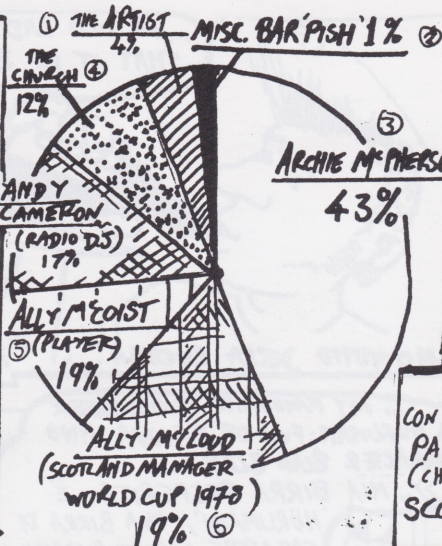 ① THE ARTIST
4%
MISC. BAR 'PISH' 1% ②
THE
CHURCH ④
12%
③
ARCHIE McPHERS
43%
ANDY
CAMERON
(RADIO DJ)
17%
ALLY McCOIST
⑤ (PLAYER)
19%
ALLY McCLOUD
(SCOTLAND MANAGER
WORLD CUP 1978
19% ⑥
CON
PA
(CH
SCO